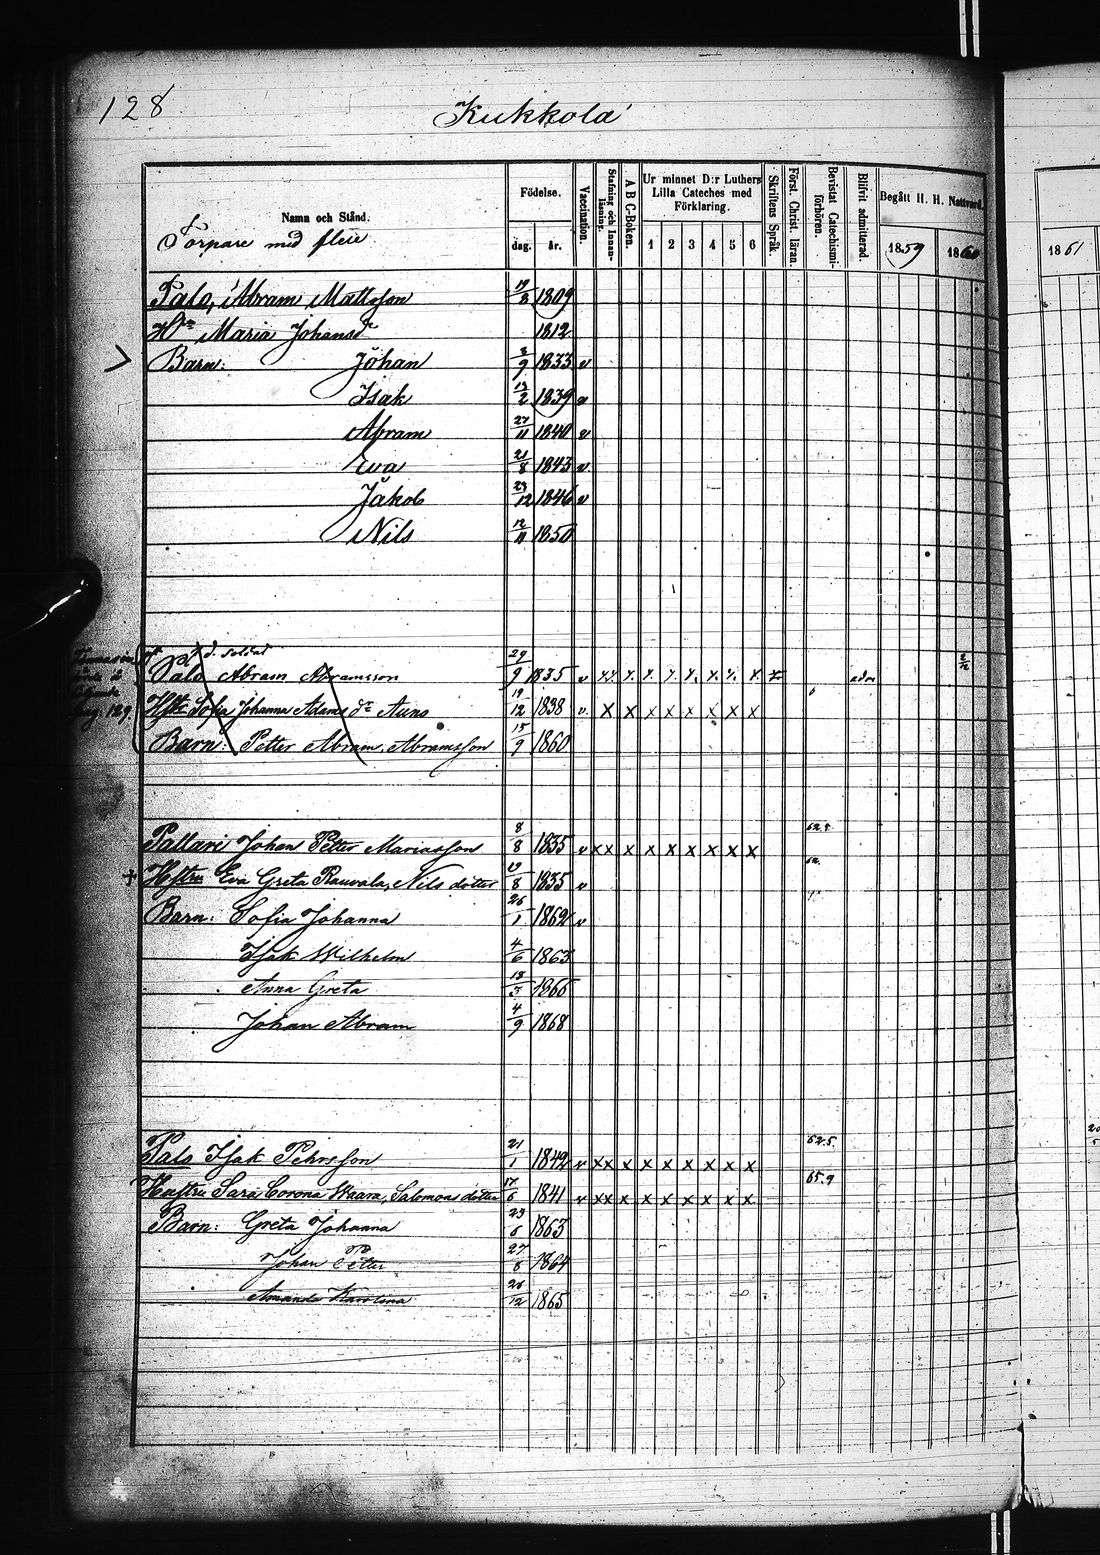 128
Kukkola
Nama och Stånd.
Torpare med flere
Födelse.
dag. år.
Vaccination.
Stafning och Innan-läsning.
A B C-Boken.
Ur minnet D:r Luthers
Lilla Cateches med
Förklaring.
1 2 3 4 5 6
Skriftens Språk.
Först. Christ. läran.
Bevistat Catechismi-förhören.
Blifvit admitterad.
Begått H. H. Nattvard.
1859 1860
1861
Palo, Abram Mattsson 19/8 1809
Hu Maria Johansdr 1812
Barn: Johan 3/9 1833 v
Isak 13/2 1839 v
Abram 27/11 1840 v
Eva 21/8 1843 v
Jakob 23/12 1846 v
Nils 12/11 1850
d. soldat
Palo Abram Abramsson 29/9 1835 v
Hstr Sofia Johanna Adams dr Auno 19/12 1838 v x x x x x x x x
Barn: Petter Abram Abramsson 15/9 1860
129
Pallari Johan Petter Mariasson 8/8 1835 v xx x x x x x x x 62.5
Hustru Eva Greta Rauvala, Nils dotter 19/8 1835 v 62.
Barn: Sofia Johanna 26/1 1862 v
Isak Wilhelm 4/6 1863
Anna Greta 18/3 1866
Johan Abram 4/9 1868
Palo Isak Pehrsson 21/1 1842 v xx x x x x x x x 62.5
Hustru Sara Corona Waara, Salomons dotter 17/6 1841 v xxx x x x x x x x 65.9
Barn: Greta Johanna 23/6 1863
Johan Petter 27/8 1864
Amanda Karolina 26/12 1865